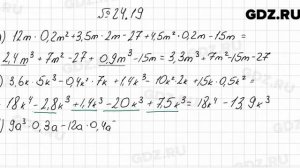 GDZ.RU
№ 24.19
) 12m · 0,2m² + 3,5m · 2m - 27 + 4,5m² · 0,2m - 15m =
2,4m³ + 7m² - 27 + 0,9m³ - 15m = 3,3m³ + 7m² - 15m - 27
) 3,6k · 5k³ - 0,4k² · 7k + 1,4k² · - 10k² · 2k + 15k · 0,5k² =
18k⁴ - 2,8k³ + 1,4k³ - 20k³ + 7,5k³ = 18k⁴ - 13,9k³
) 9a³ · 0,3a - 12a · 0,4a